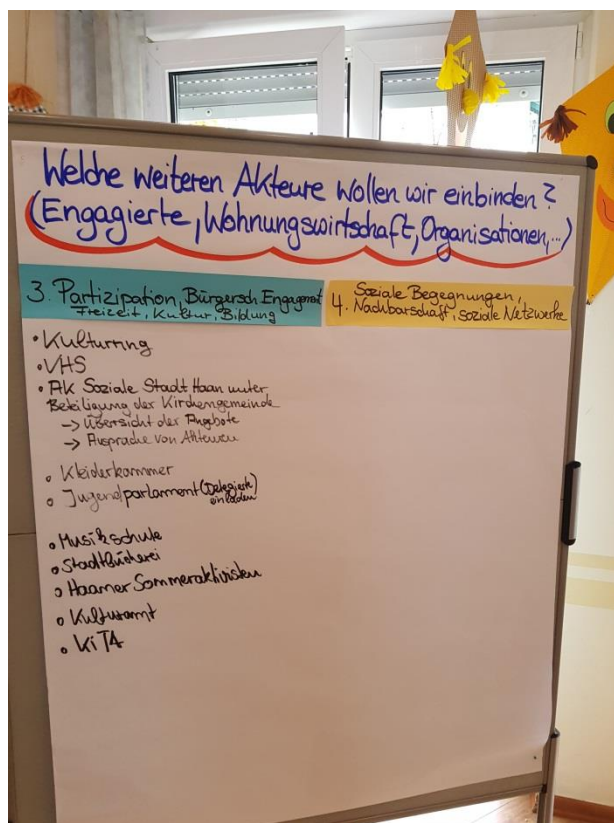 Welche weiteren Akteure wollen wir einbinden?
(Engagierte, Wohnungswirtschaft, Organisationen,...)
3. Partizipation, Bürgersch. Engagemt
Freizeit, Kultur, Bildung
Soziale Begegnungen,
4. Nachbarschaft, soziale Netzwerke
• Kulturring
• VHS
• AK Soziale Stadt Haan unter
Beteiligung der Kirchengemeinde
→ Übersicht der Angebote
→ Ansprache von Akteuren
• Kleiderkammer
• Jugendparlament (Delegierte)
einladen
• Musikschule
• Stadtbücherei
• Haaner Sommeraktivisten
• Kulturamt
• KiTA